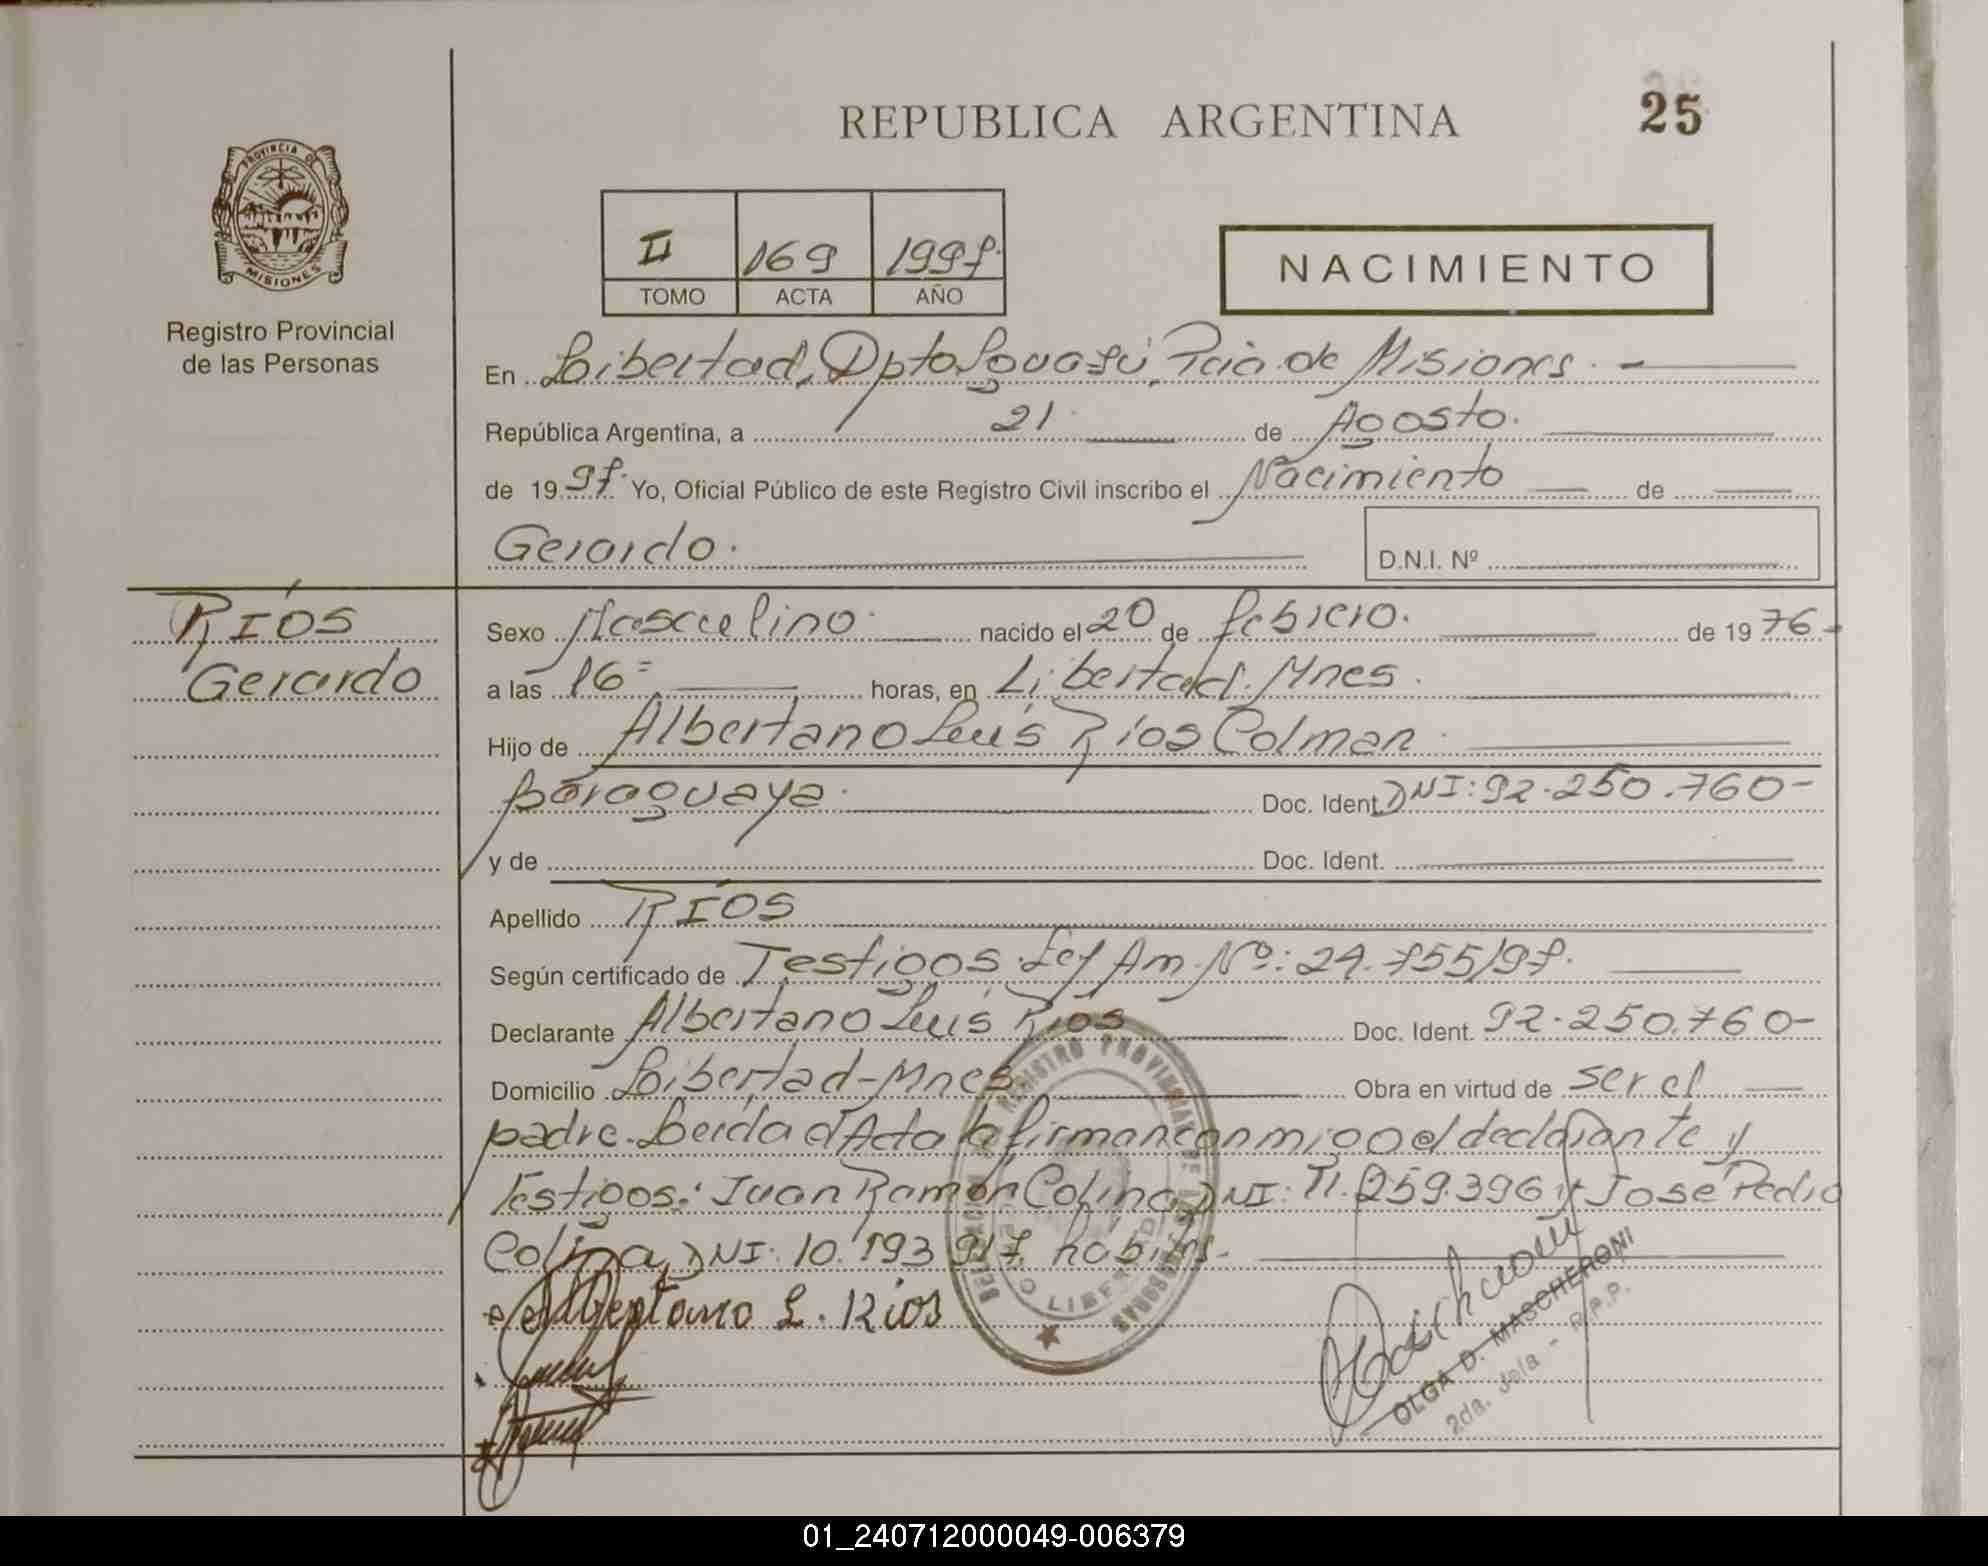 25
REPUBLICA ARGENTINA
PROVINCIA DE
MISIONES
Registro Provincial
de las Personas
II 169 1997.
TOMO ACTA AÑO
NACIMIENTO
En Libertad, Dpto Iguazú, Pcia. de Misiones.
República Argentina, a 21 de Agosto.
de 1997. Yo, Oficial Público de este Registro Civil inscribo el Nacimiento de
Gerardo.
D.N.I. Nº
Ríos
Gerardo
Sexo Masculino nacido el 20 de febrero. de 1976-
a las 16= horas, en Libertad. Mnes.
Hijo de Albertano Luis Ríos Colman.
Paraguaya. Doc. Ident. DNI: 92.250.760-
y de Doc. Ident.
Apellido Ríos
Según certificado de Testigos. Ley Am. Nº: 24.755/97.
Declarante Albertano Luis Ríos Doc. Ident. 92.250.760-
Domicilio Libertad-Mnes Obra en virtud de ser el
padre. Leída el Acta la firman conmigo el declarante y
Testigos: Juan Ramón Colina, DNI: 259.396 y José Pedro
Colina, DNI: 10.193.917
L. Rios
REGISTRO PROVINCIAL DE LAS PERSONAS
OLGA D. MASCHERONI
2da. Jefa - R.P.P.
01_240712000049-006379